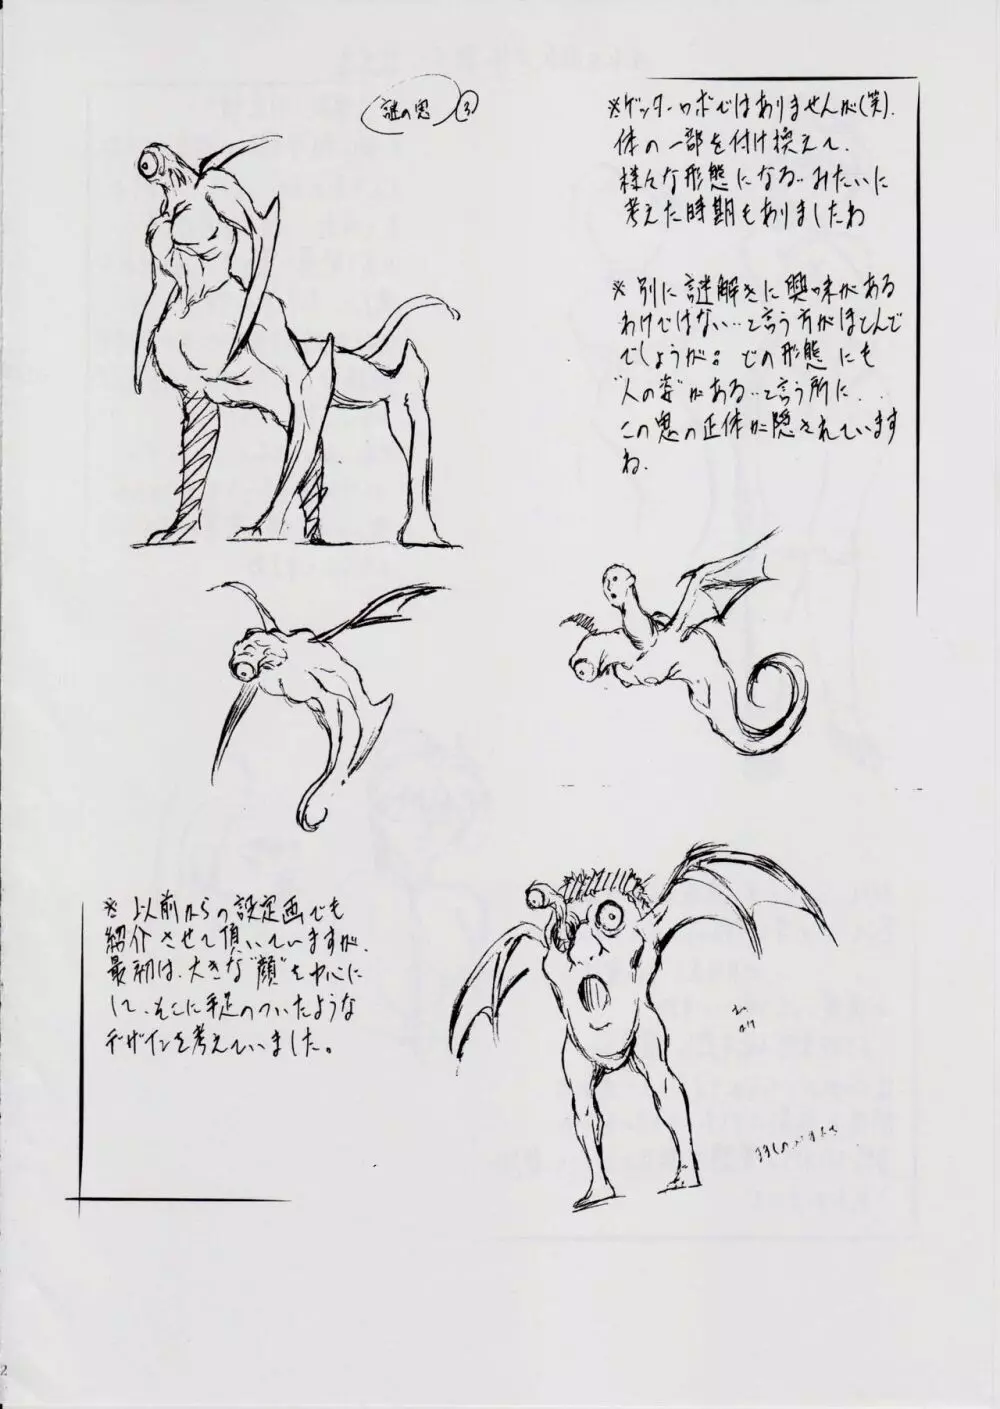 謎の鬼 ③
※ゲッターロボではありませんが(笑).
体の一部を付け換えて、
様々な形態になる‥みたいに
考えた時期もありましたね
※別に謎解きに興味がある
わけではない‥と言う方がほとんで
でしょうが。どの形態にも
"人の姿"がある‥と言う所に‥
この鬼の正体が隠されています
ね.
※以前からの設定画でも
紹介させて頂いていますが、
最初は、大きな"顔"を中心に
して、そこに手足のついたような
デザインを考えていました。
2